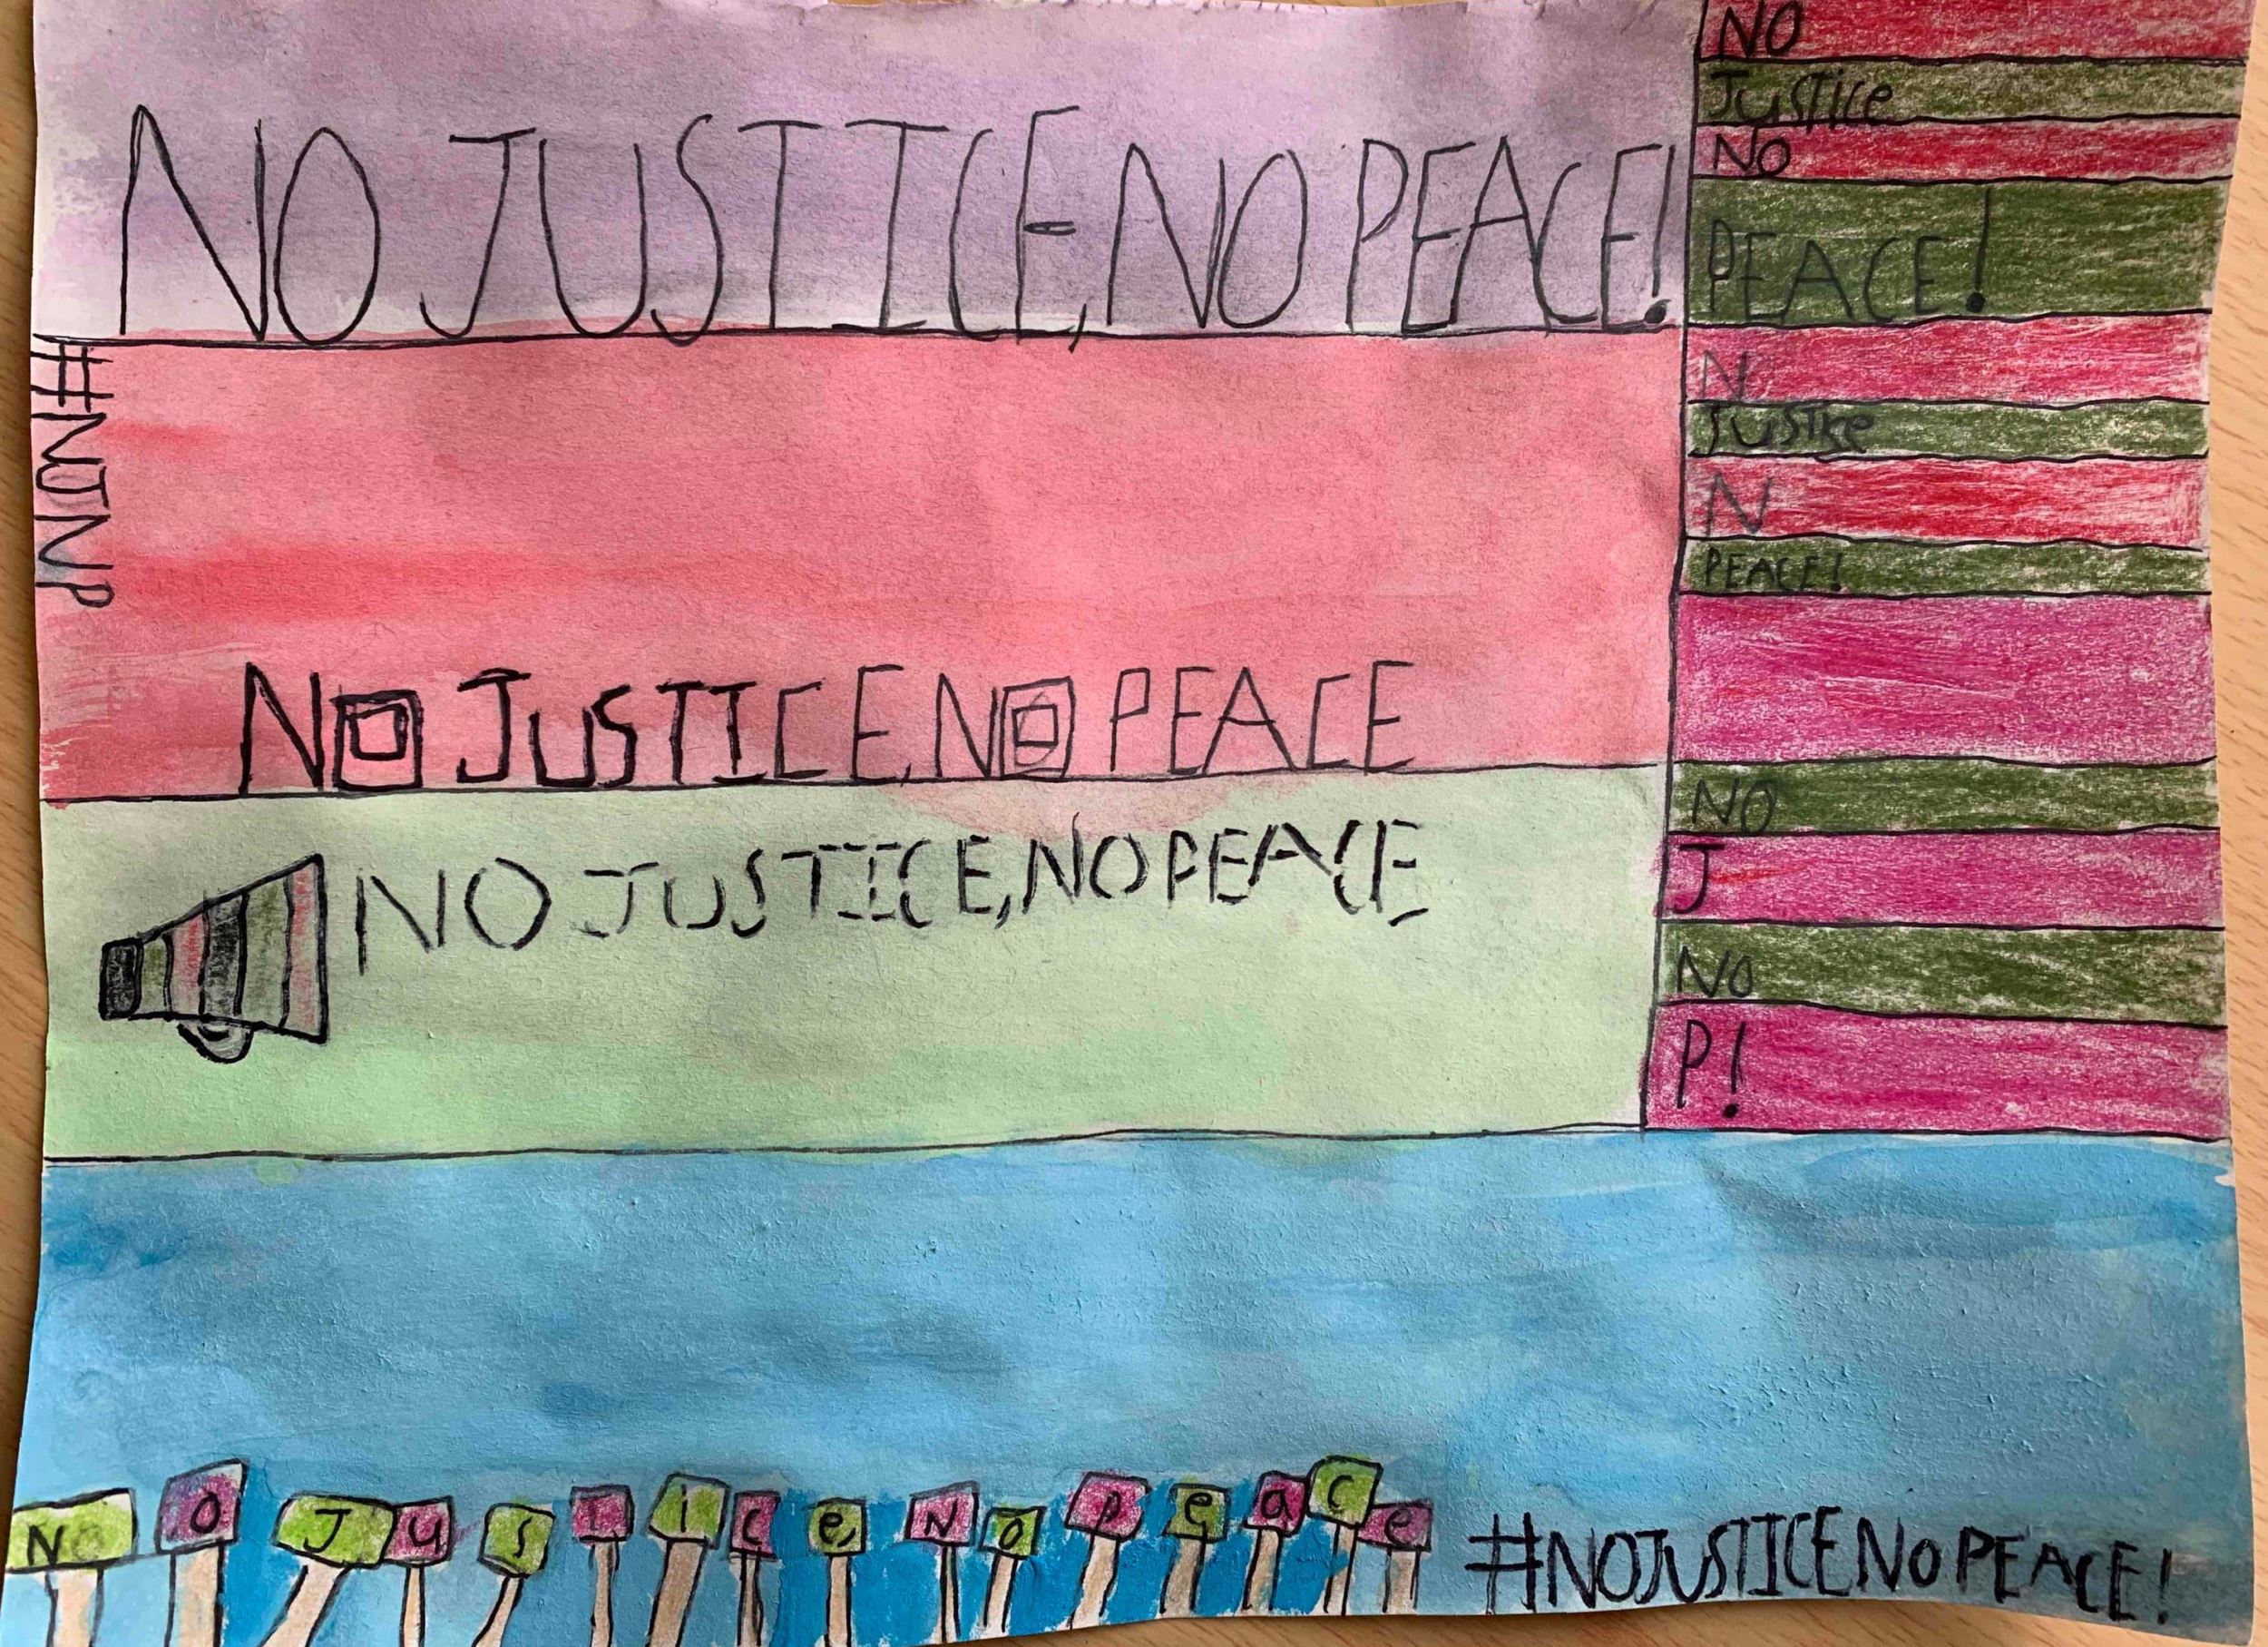 NO JUSTICE, NO PEACE!
#NJNP
NO JUSTICE, NO PEACE
NO JUSTICE, NO PEACE
NO
Justice
NO
PEACE!
N
Justice
N
PEACE!
NO
J
NO
P!
No Justice, No peace
#NOJUSTICENOPEACE!